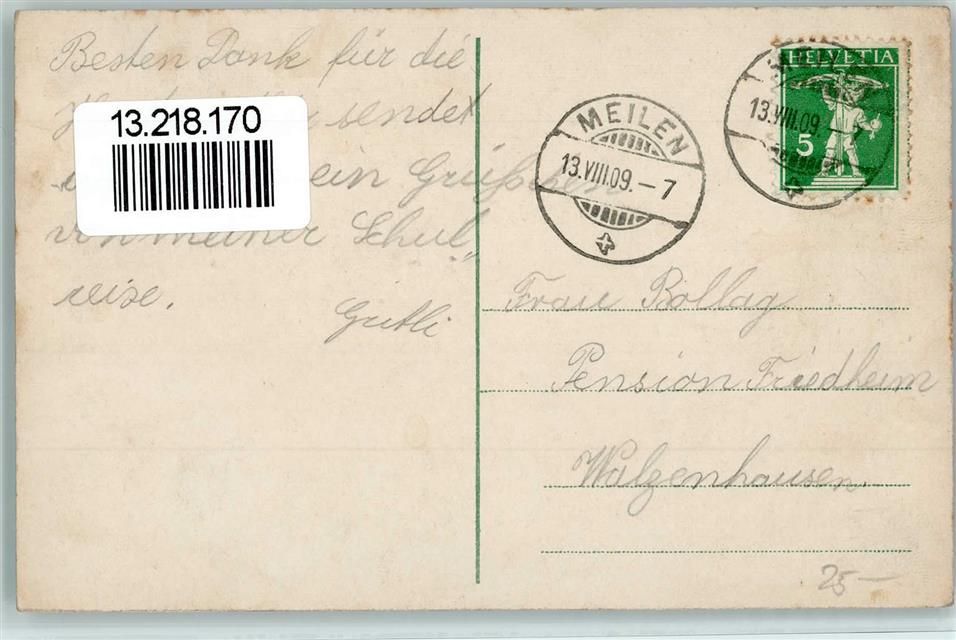 Besten Dank für die
sendet
ein Grüßchen
von meiner Schul„
reise.
Gritli
13.218.170
MEILEN
13.VIII.09.–7
HELVETIA
5
13.VIII.09.–7
Frau Bollag
Pension Friedheim
Walzenhausen.
25–